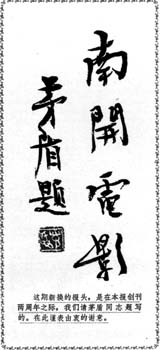 南開電影
茅盾題
这期新换的报头，是在本报创刊
两周年之际，我们请茅盾同志题写
的。在此谨表由衷的谢意。